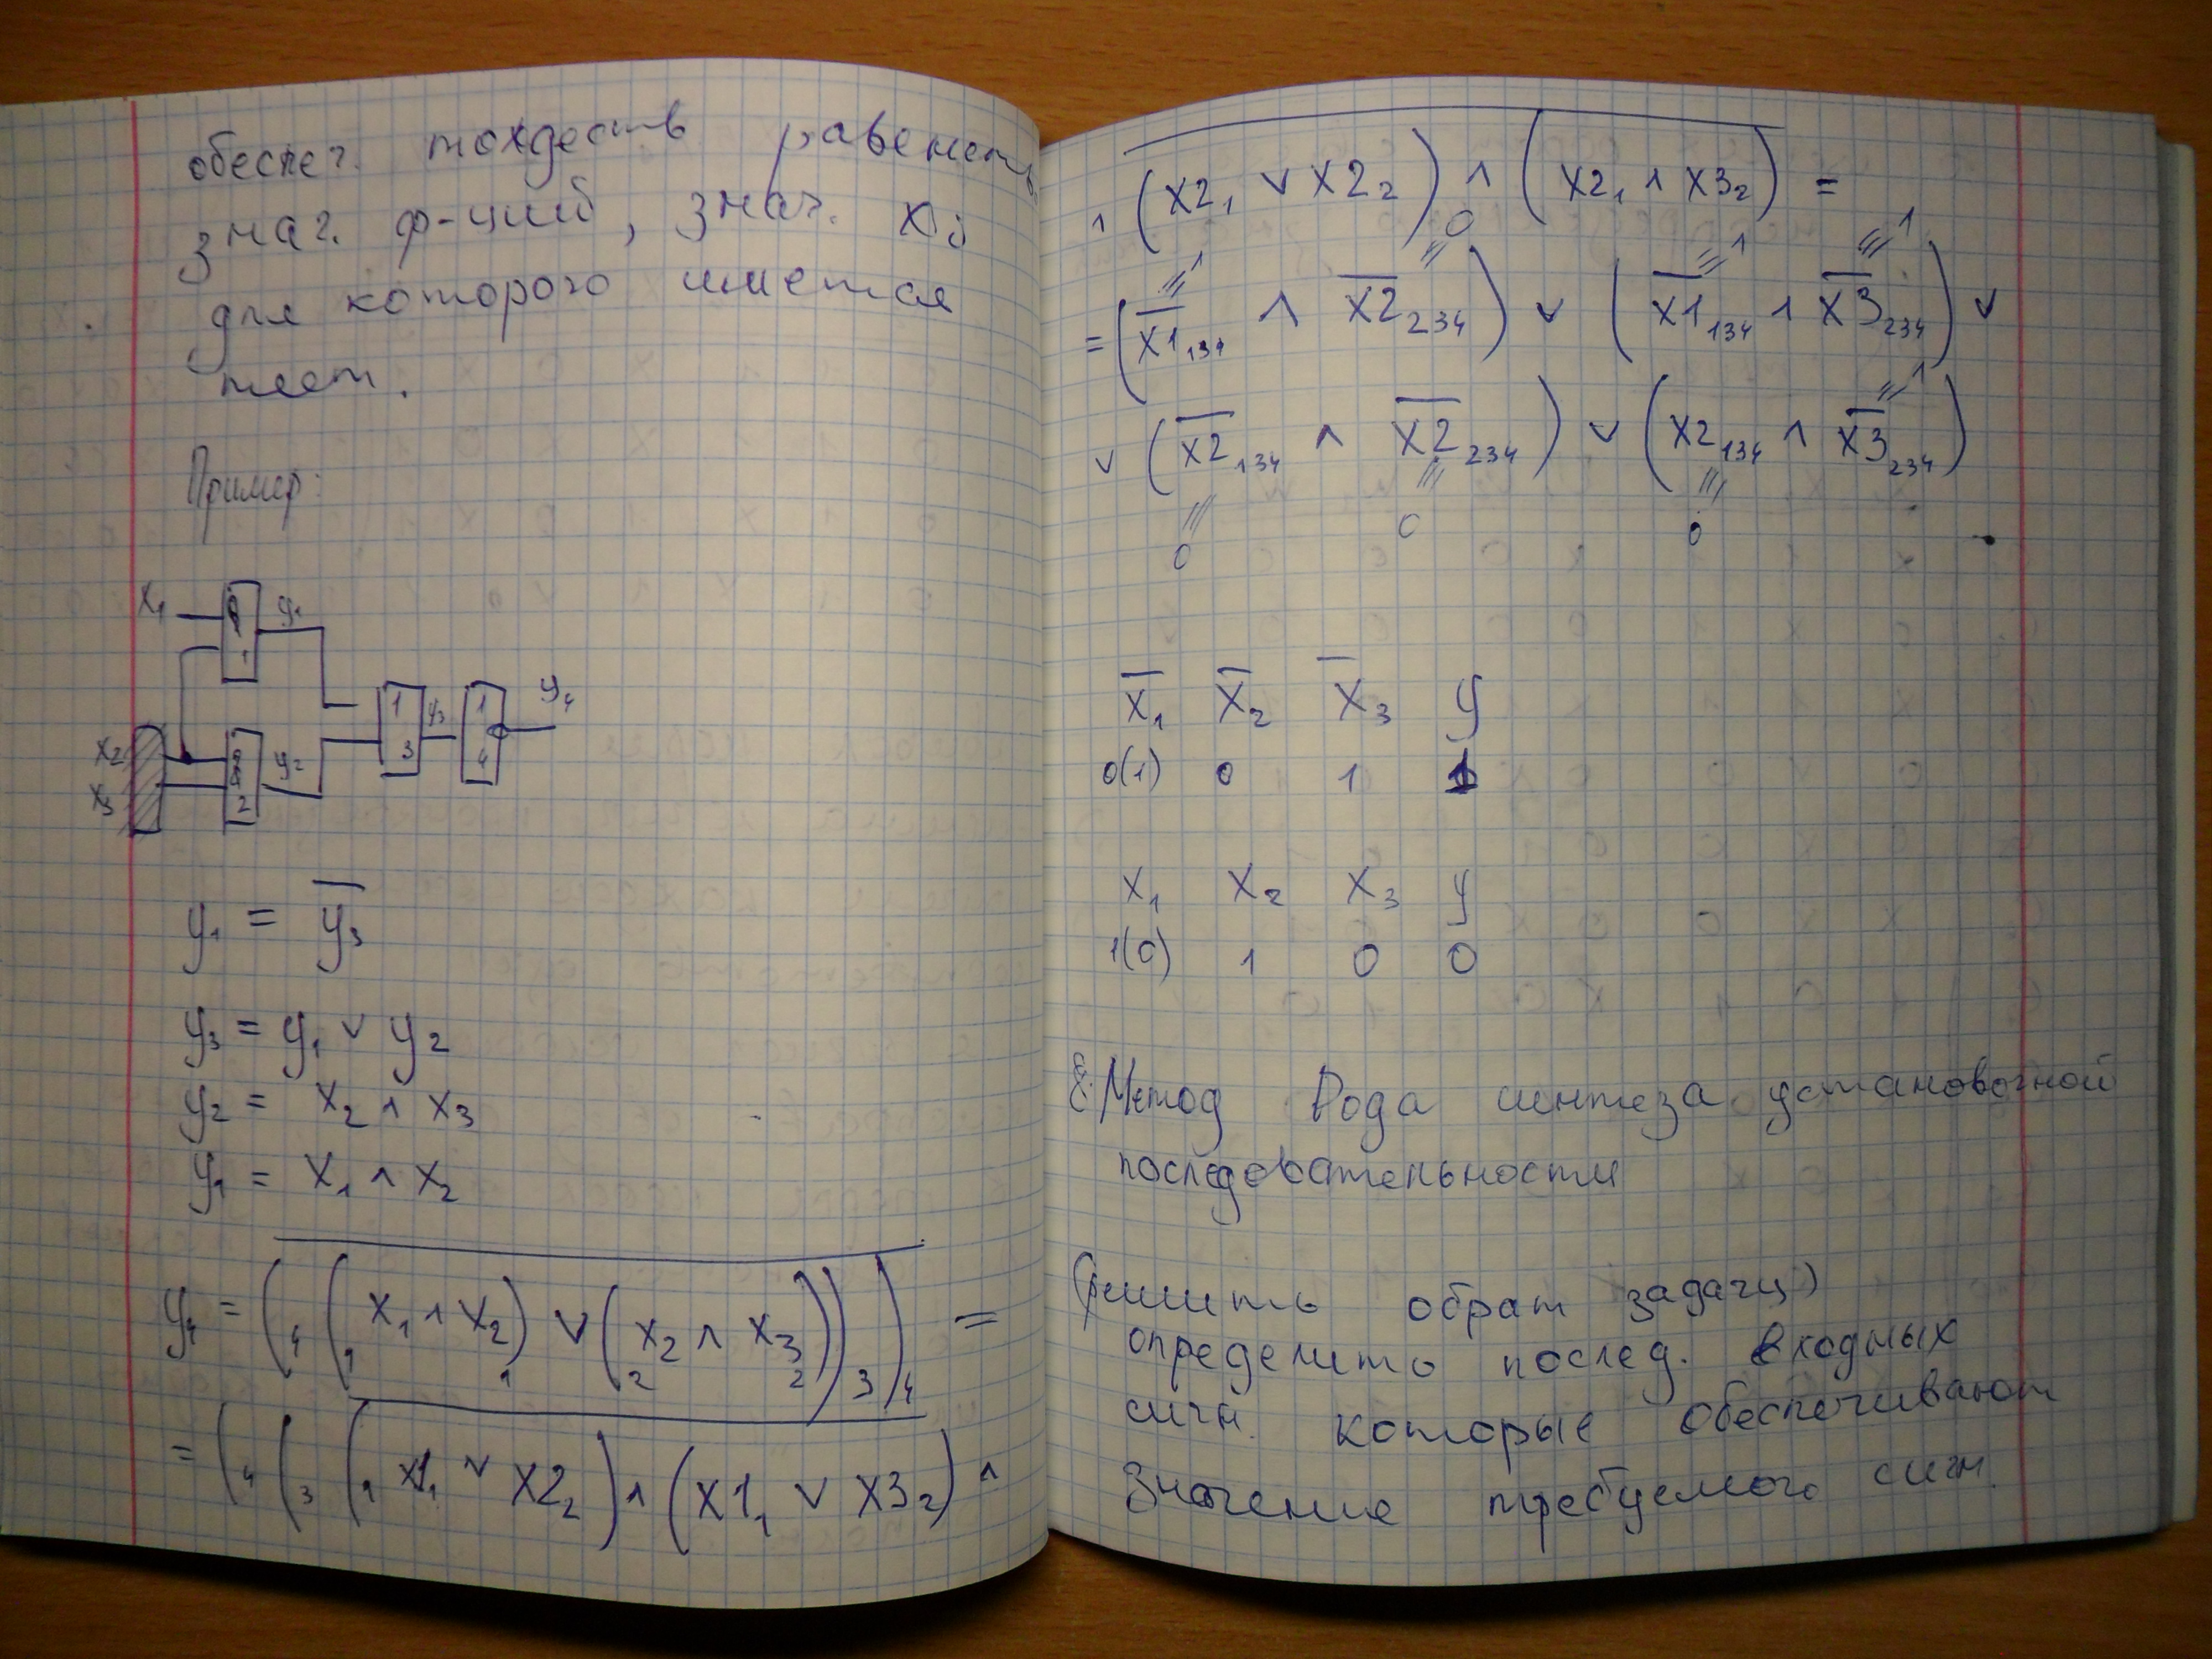 обеспеч. тождеств равеность
знач. ф-ций, знач. xij
для которого имеется
тест.
Пример:
x₁ & 1 y₁
x₂
x₃
& 2 y₂
1 3 y₃
1 4 y₄
y₁ = y̅₃
y₃ = y₁ ∨ y₂
y₂ = x₂ ∧ x₃
y₁ = x₁ ∧ x₂
y₄ = (₄ (₁ x₁ ∧ x₂)₁ ∨ (₂ x₂ ∧ x₃)₂)₃)₄ =
= (₄ (₃ (₁ x1₁ ∨ x2₂) ∧ (x1₁ ∨ x3₂) ∧
∧ (x2₁ ∨ x2₂) ∧ (x2₁ ∧ x3₂) =
= (x̅1̅₁₃₄ ∧ x̅2̅₂₃₄) ∨ (x̅1̅₁₃₄ ∧ x̅3̅₂₃₄) ∨
∨ (x̅2̅₁₃₄ ∧ x̅2̅₂₃₄) ∨ (x2₁₃₄ ∧ x̅3̅₂₃₄)
x̅₁ x̅₂ x̅₃ y
0(1) 0 1 1
x₁ x₂ x₃ y
1(0) 1 0 0
8. Метод Рода синтеза установочной
последовательности
(решить обрат задачу)
определить послед. входных
сигн. которые обеспечивают
значение требуемого сигн.